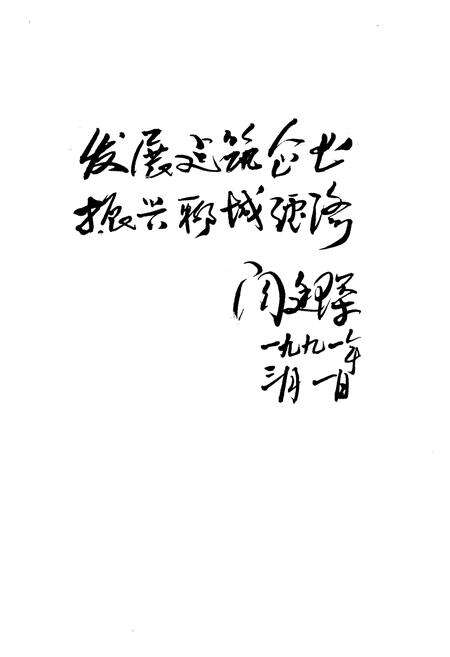 发展建筑企业
振兴聊城经济
闫廷琛
一九九一年
三月一日